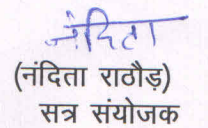 नंदिता
(नंदिता राठौड़)
सत्र संयोजक